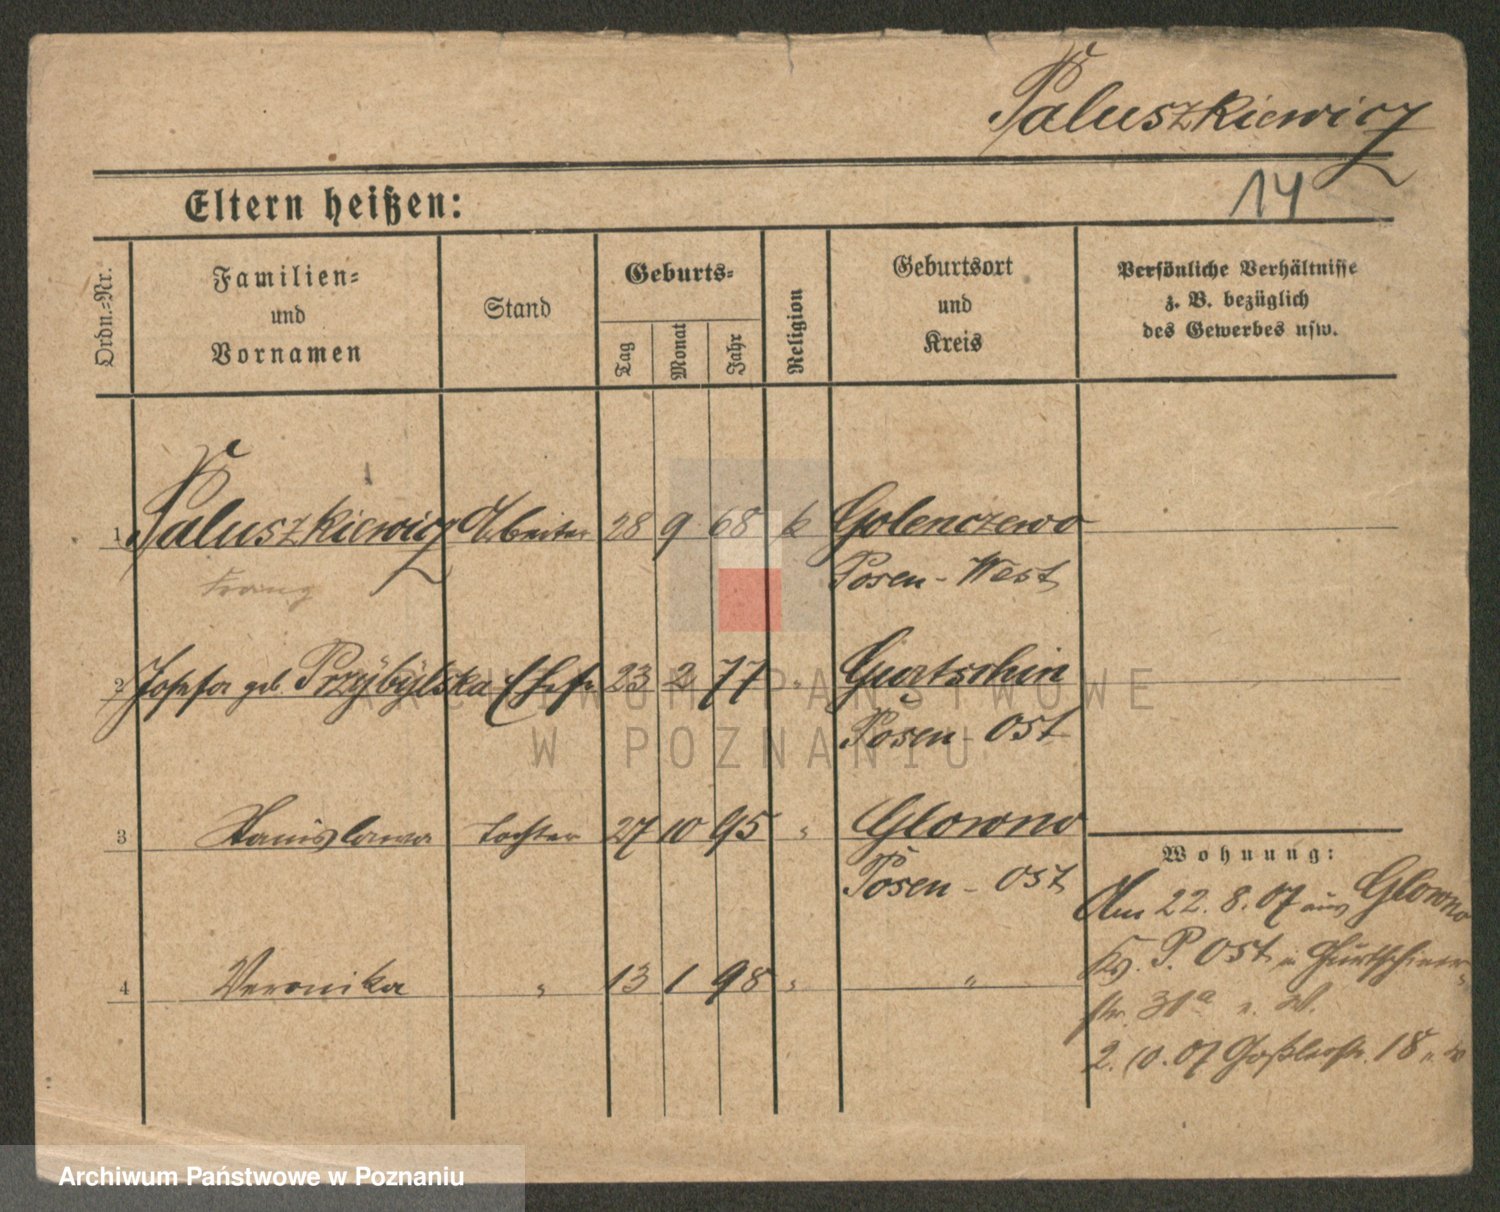 Paluszkiewicz
Eltern heißen:
14
Ordn.-Nr.
Familien-
und
Vornamen
Stand
Geburts-
Tag
Monat
Jahr
Religion
Geburtsort
und
Kreis
Persönliche Verhältnisse
z. B. bezüglich
des Gewerbes usw.
1 Paluszkiewicz Arbeiter 28 9 68 k Golenczewo
Franz Posen-West
2 Josefa geb. Przybylska Ehefr. 23 2 77 " Gurtschin
Posen-Ost
3 Stanislawa Tochter 27 10 95 " Glowno
Posen-Ost
Wohnung:
Am 22. 8. 07 aus Glowno
4 Veronika " 13 1 98 " "
Kr. P. Ost n. Gurtschiner-
str. 31a
2. 10. 07 Goßlerstr. 18
ARCHIWUM PAŃSTWOWE
W POZNANIU
Archiwum Państwowe w Poznaniu